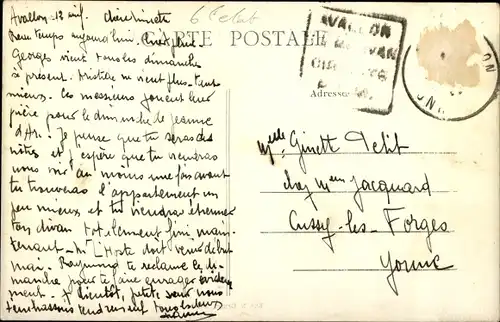 Avallon - 12 avril. Chère Ginette
Beau temps aujourd'hui. hier pluie
Georges vient tous les dimanche
à présent. Tristan ne vient plus - tant
mieux. Ces messieurs jouent leur
pièce pour le dimanche de Jeanne
d'Arc. Je pense que tu seras des
nôtres et j'espère que tu viendras
nous voir au moins une fois avant
tu trouveras l'appartement un
peu mieux et tu viendras étrenner
ton divan totalement fini main-
tenant - Mr L'Hoste doit venir début
mai. Raymond te réclame ce di-
manche pour te faire enrager évidem-
ment. A bientôt, petite sœur nous
t'embrassons tendrement tous
6e
CARTE POSTALE
Adresse
AVALLON
MORVAN
Melle Ginette Petit
chez Mme Jacquard
Cussy-les-Forges
Yonne